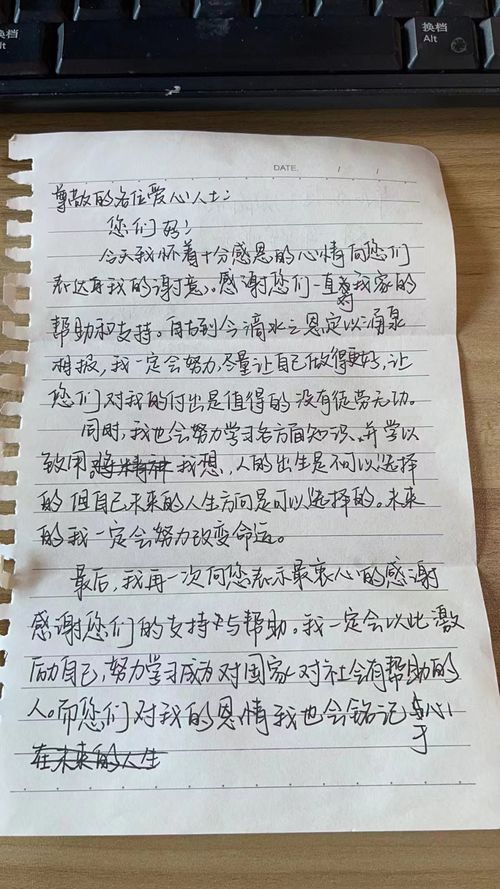 换档
Alt
换档
Alt
DATE. / /
尊敬的各位爱心人士:
您们好:
今天我怀着十分感恩的心情向您们
表达我的谢意。感谢您们一直对我家的
帮助和支持。自古到今滴水之恩定以涌泉
相报,我一定会努力,尽量让自己做得更好,让
您们对我的付出是值得的没有徒劳无功。
同时,我也会努力学习各方面知识、并学以
致用。将精神我想,人的出生是不可以选择
的但自己未来的人生方向是可以选择的。未来
的我一定会努力改变命运。
最后,我再一次向您表示最衷心的感谢
感谢您们的支持与帮助。我一定会以此激
励自己,努力学习成为对国家对社会有帮助的
人。而您们对我的恩情我也会铭记于心
在未来的人生